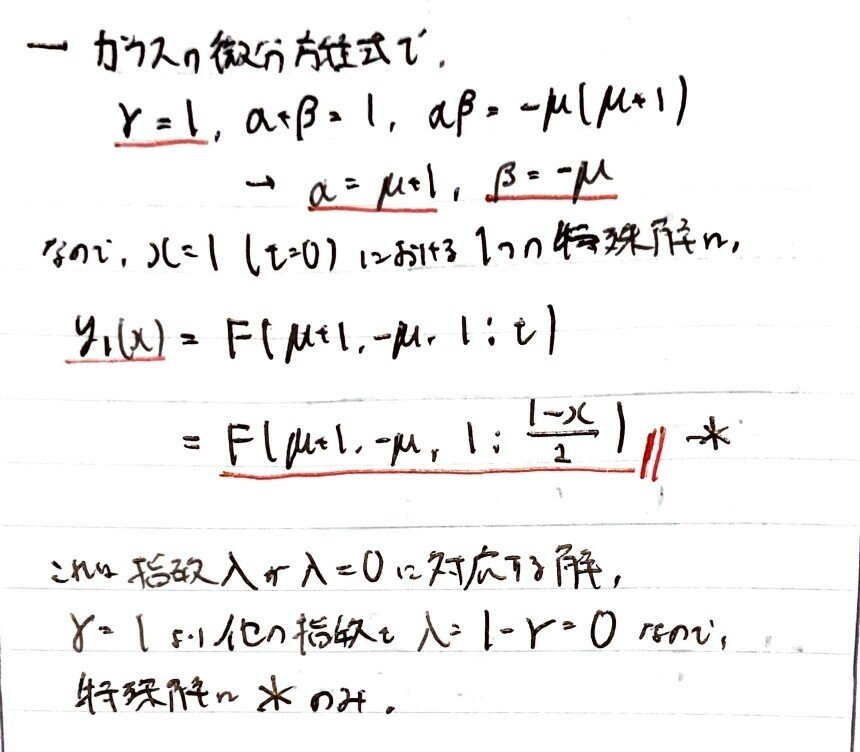 — ガウスの微分方程式で,
γ = 1, α+β = 1, αβ = -μ(μ+1)
→ α = μ+1, β = -μ
なので, x=1 (t=0) における1つの特殊解は,
y₁(x) = F(μ+1, -μ, 1 ; t)
= F(μ+1, -μ, 1 ; (1-x)/2) // -*
これは指数λがλ=0に対応する解,
γ=1より他の指数もλ=1-γ=0なので,
特殊解は * のみ.